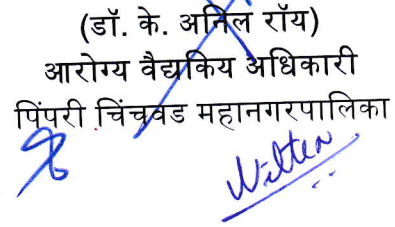 (डॉ. के. अनिल रॉय)
आरोग्य वैद्यकिय अधिकारी
पिंपरी चिंचवड महानगरपालिका